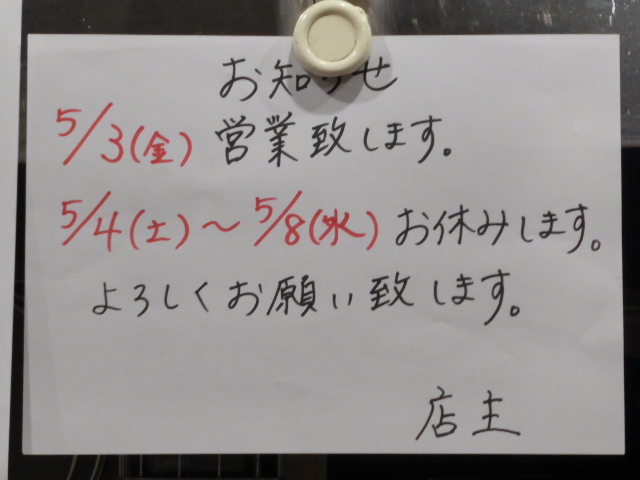 お知らせ
5/3(金) 営業致します。
5/4(土)～5/8(水) お休みします。
よろしくお願い致します。
店主